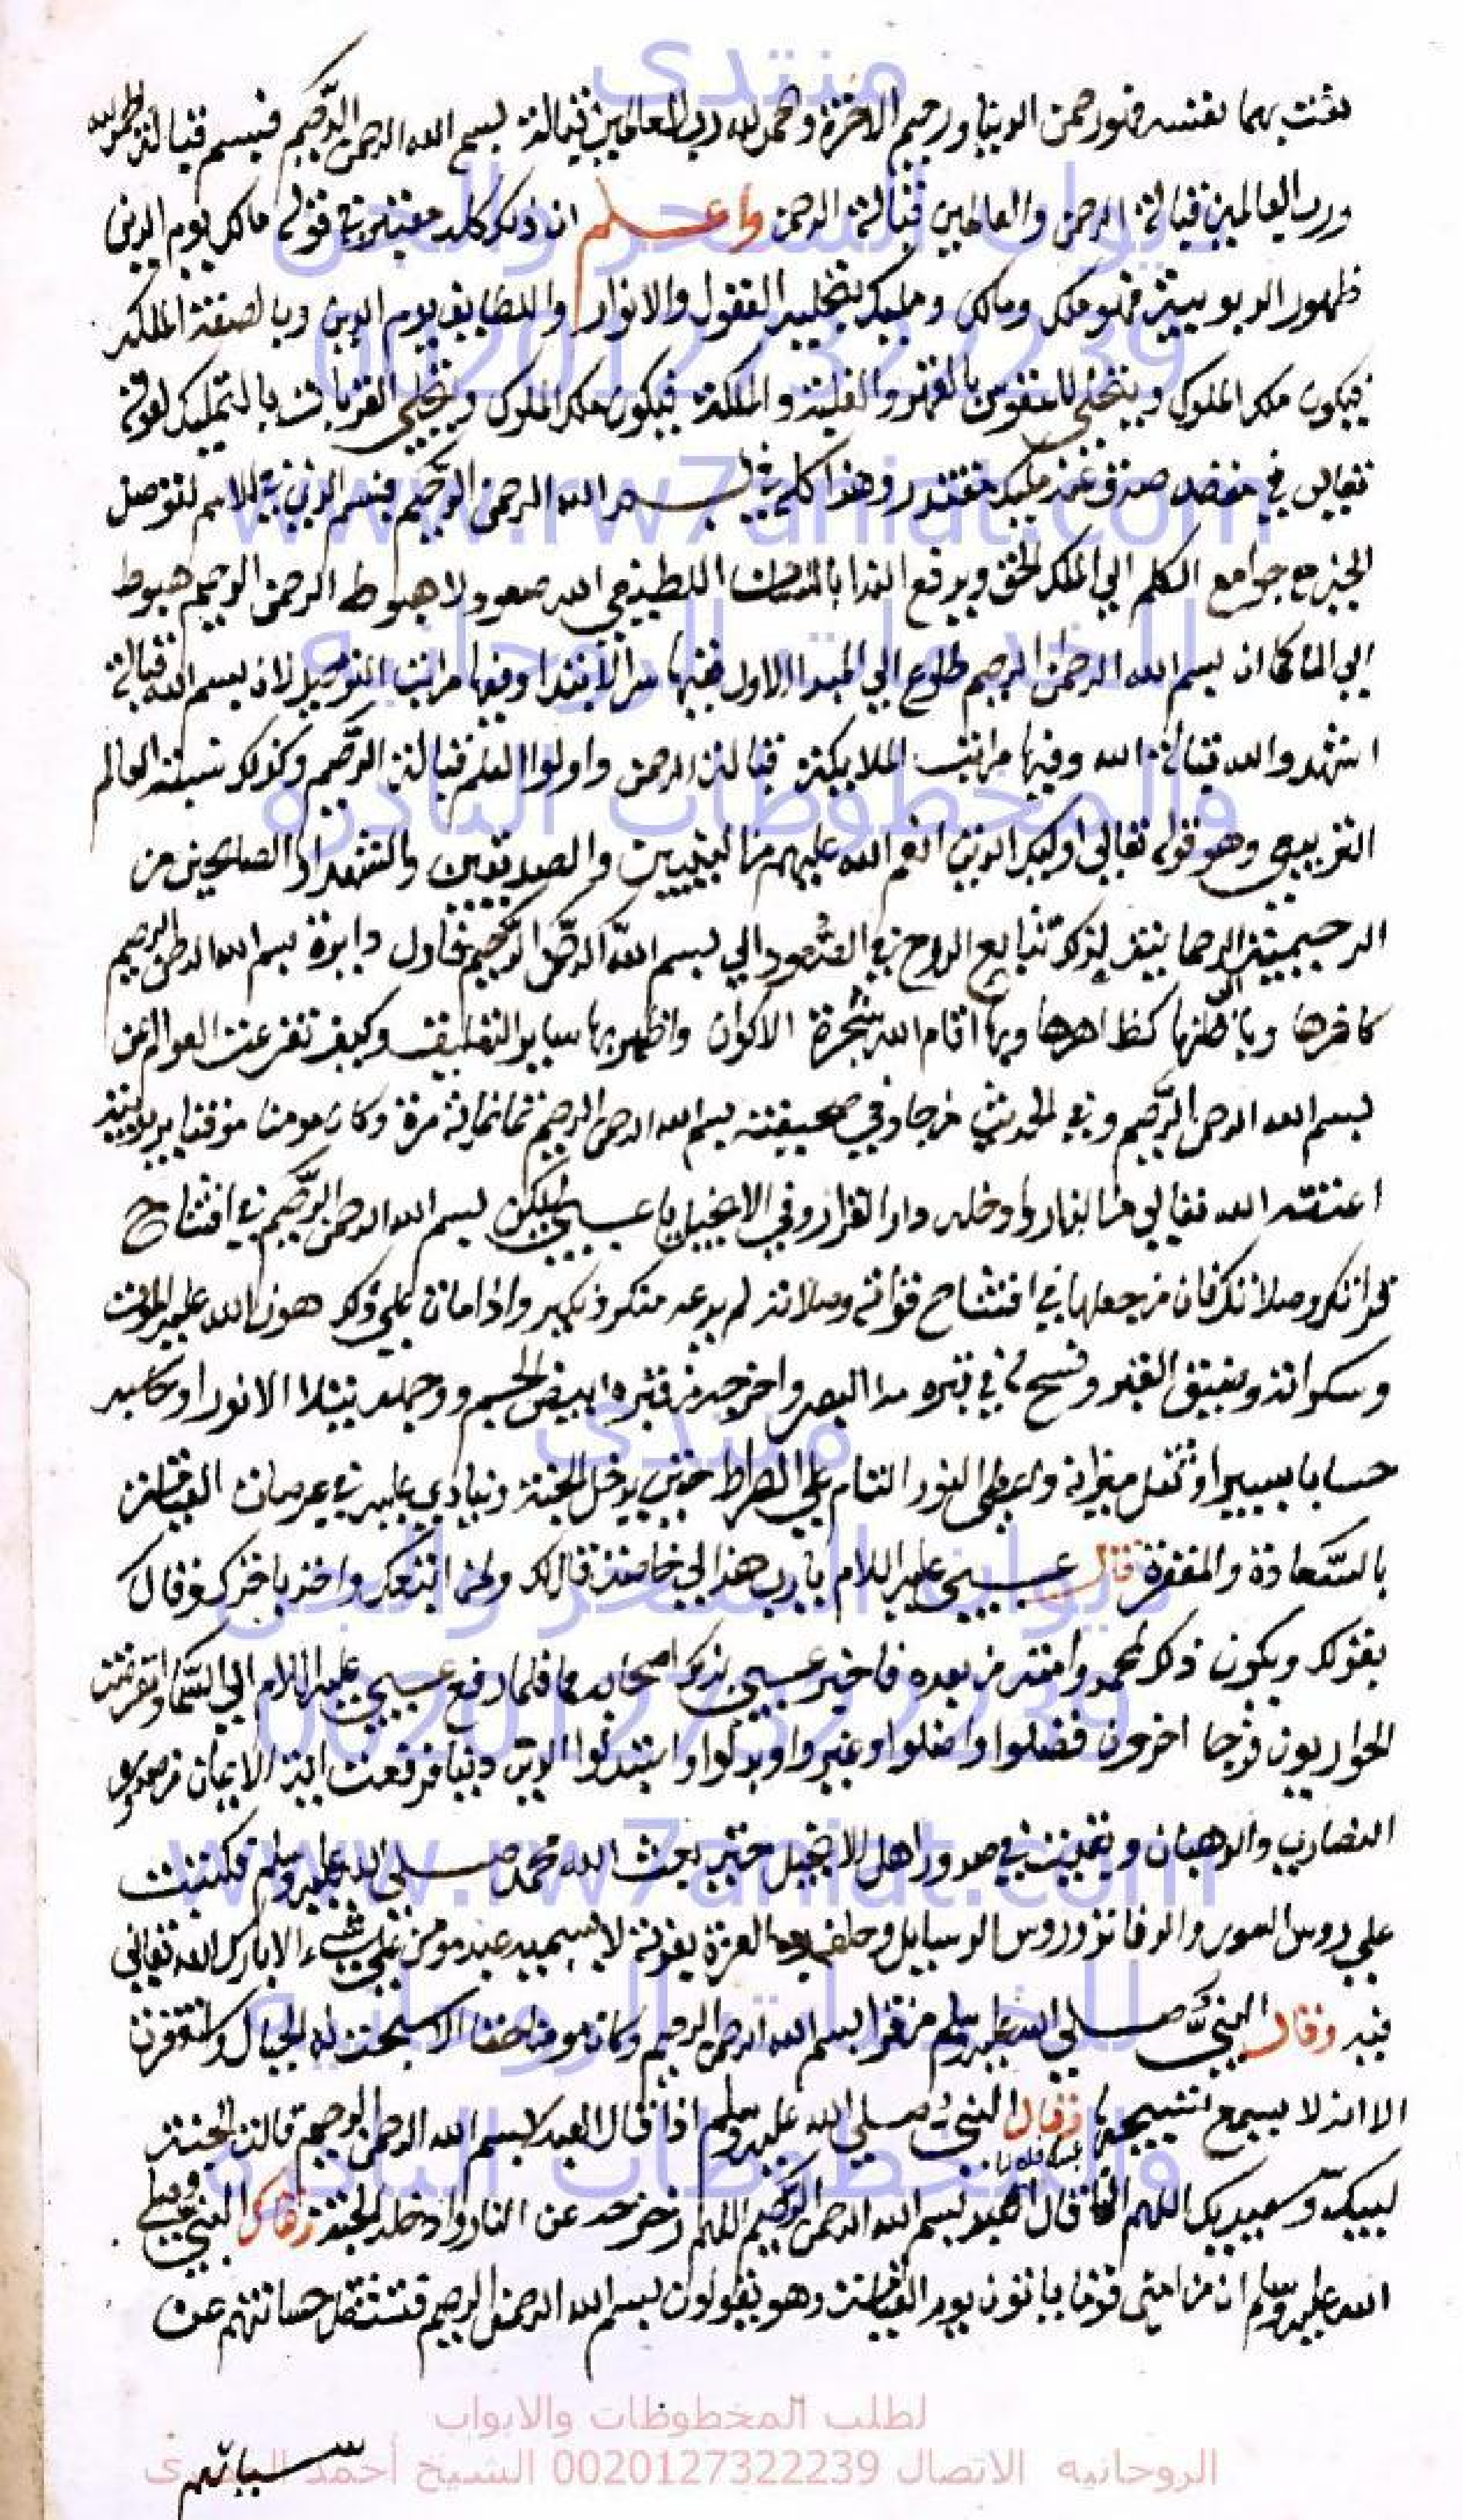 نعت بهما نفسه فهو رحمن الدنيا ورحيم الاخرة والحمد لله رب العالمين قبالة بسم الله الرحمن الرحيم فبسم قبالة الحمد لله
ورب العالمين قبالة الرحمن والعالمين قبالة الرحمن واعلم ان ذلك كله في قوله مالك يوم الدين
ظهور الربوبية فهو ملك ومالك ومليك العقول والانوار واللطايف يوم الدين وبالصفة الملك
فيكون ملك الملوك ويتجلى للنفوس بالقهر والغلبة والملكة فيكون ملك الملوك ويتجلى بالتمليك لقوله
تعالى في مقعد صدق عند مليك مقتدر وهذا كله في بسم الله الرحمن الرحيم
جوامع الكلم الى الملك الحق ويرفع الندا اللطيفة الى الله صعود لا هبوط الرحمن الرحيم هبوط
الى كما ان بسم الله الرحمن الرحيم طلوع الى المبدا الاول ففيها سر الابتدا وفيها مراتب التوصيل لان بسم الله قبالة
اشهد والله قبالة الله وفيها مراتب الملايكة قبالة الرحمن واولوا العلم قبالة الرحيم وكذلك نسبة العالم
وهو قوله تعالى اوليك الذين انعم الله عليهم من النبيين والصديقين والشهدا والصالحين من
الرحيمية الرحمانية لذلك تتابع الروح في الصعود الى بسم الله الرحمن الرحيم فاول دايرة بسم الله الرحمن الرحيم
كاخرها وباطنها كظاهرها وبها اقام الله شجرة الاكوان واظهر بها ساير وكيف تفرعت العوالم عن
بسم الله الرحمن الرحيم وفي الحديث من جا وفي صحيفته بسم الله الرحمن الرحيم ثمانماية مرة وكان مومنا موقنا بربوبيته
اعتقه الله تعالى من النار وادخله دار القرار وفي الانجيل يا عيسى ليكن بسم الله الرحمن الرحيم في افتتاح
قراتك وصلاتك فان من جعلها في افتتاح قراته وصلاته لم يرعه منكر ونكير واذا مات على ذلك هون الله عليه الموت
وسكراته وضيق القبر وفسح له في قبره مدا البصر واخرجه من قبره ابيض الجسم ووجهه يتلالا الانورا وحاسبه
حسابا يسيرا وثقل ميزانه واعطى النور التام على الصراط حتى يدخل الجنة وينادي عليه في عرصات القيامة
بالسعادة والمغفرة قال عيسى عليه السلام يارب هذا لي خاصة قال لك ولمن اتبعك واخذ باخذك وقال
بقولك ويكون ذلك لمحمد وامته من بعده فاخبر عيسى بذلك اصحابه فلما رفع عيسى عليه السلام الى السما وانقرضت
الحواريون وجا اخرون فضلوا واضلوا وغيروا وبدلوا واستبدلوا الدين دنيا فرفعت اية الايمان من صدور
النصارى والرهبان وبقيت في صدور اهل الانجيل حتى بعث الله محمد صلى الله عليه وسلم فكتبت
على روس السور والدفاتر وروس الرسايل وحلف رب العزة بعزته لا يسميه عبد مومن على شيء الا بارك الله تعالى
فيه وقال النبي صلى الله عليه وسلم من قرا بسم الله الرحمن الرحيم وكان مومنا حقا الا سبحت له الجبال واستغفرت
الا انه لا يسمع تسبيحها وقال النبي صلى الله عليه وسلم اذا قال العبد بسم الله الرحمن الرحيم قالت الجنة
لبيك وسعديك اللهم قال العبد بسم الله الرحمن الرحيم اللهم زحزحه عن النار وادخله الجنة وقال النبي صلى
الله عليه وسلم ان من امتي قوما ياتون يوم القيامة وهو يقولون بسم الله الرحمن الرحيم فتثقل حسناتهم عن
سياتهم
منتدى
ديوان السحر والجن
0020127322239
www.rw7aniat.com
للخدمات الروحانيه
والمخطوطات النادرة
منتدى
ديوان السحر والجن
0020127322239
www.rw7aniat.com
للخدمات الروحانيه
والمخطوطات النادرة
لطلب المخطوظات والابواب
الروحانيه الاتصال 0020127322239 الشيخ أحمد